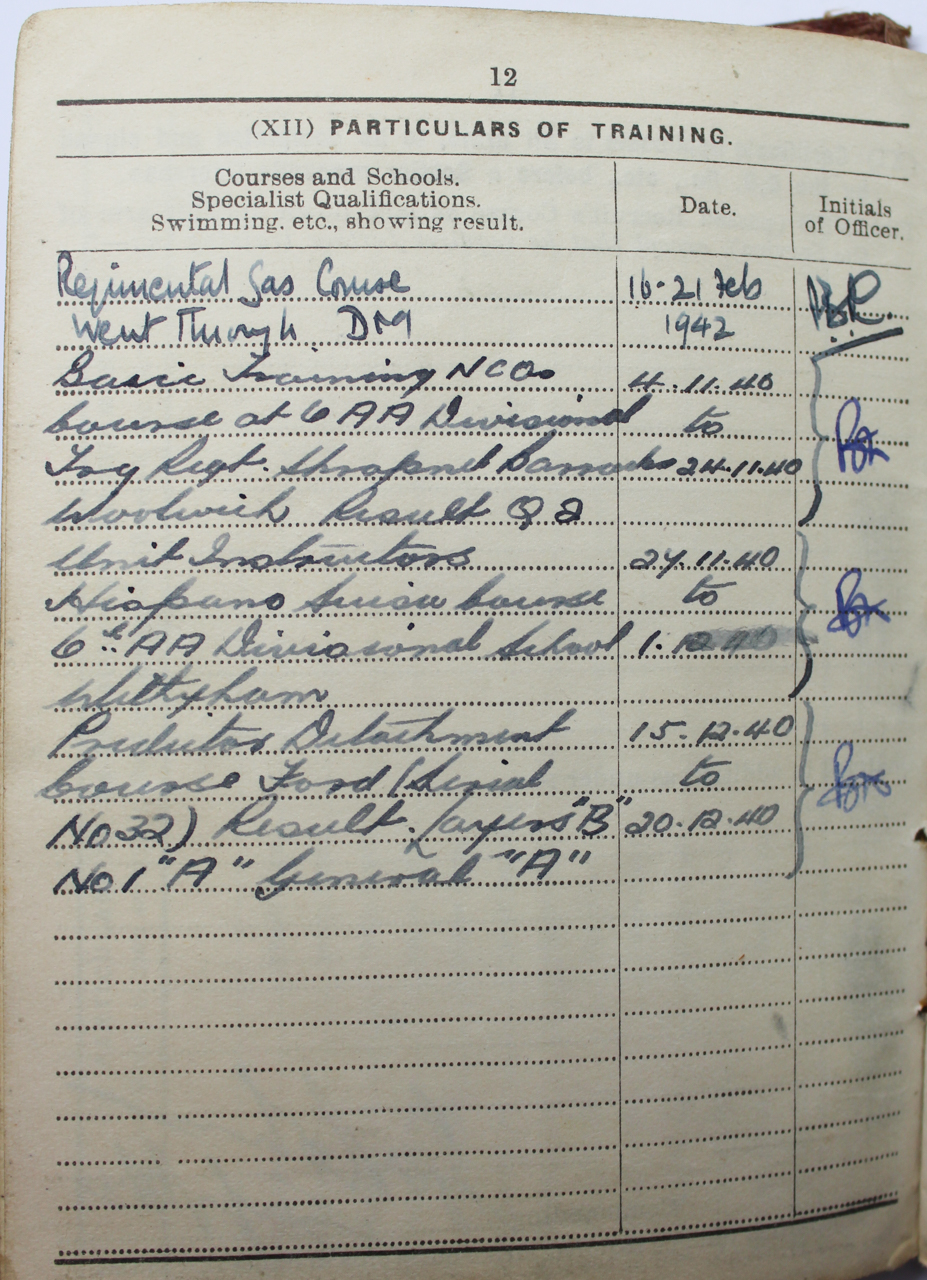 12
(XII) PARTICULARS OF TRAINING.
Courses and Schools.
Specialist Qualifications.
Swimming. etc., showing result.
Date.
Initials
of Officer.
Regimental Gas Course 16-21 Feb
Went Through DM 1942
Basic Training NCOs 4.11.40
Course at 6 AA Divisional to
Trg Regt. Shrapnel Barracks 24.11.40
Woolwich Result Q2
Unit Instructors 27.11.40
Hispano Suiza Course to
6th AA Divisional School 1.12.40
Wittyham
Predictor Detachment 15.12.40
Course Ford (Serial to
No 32) Result. Layers "B" 20.12.40
No 1 "A" General "A"